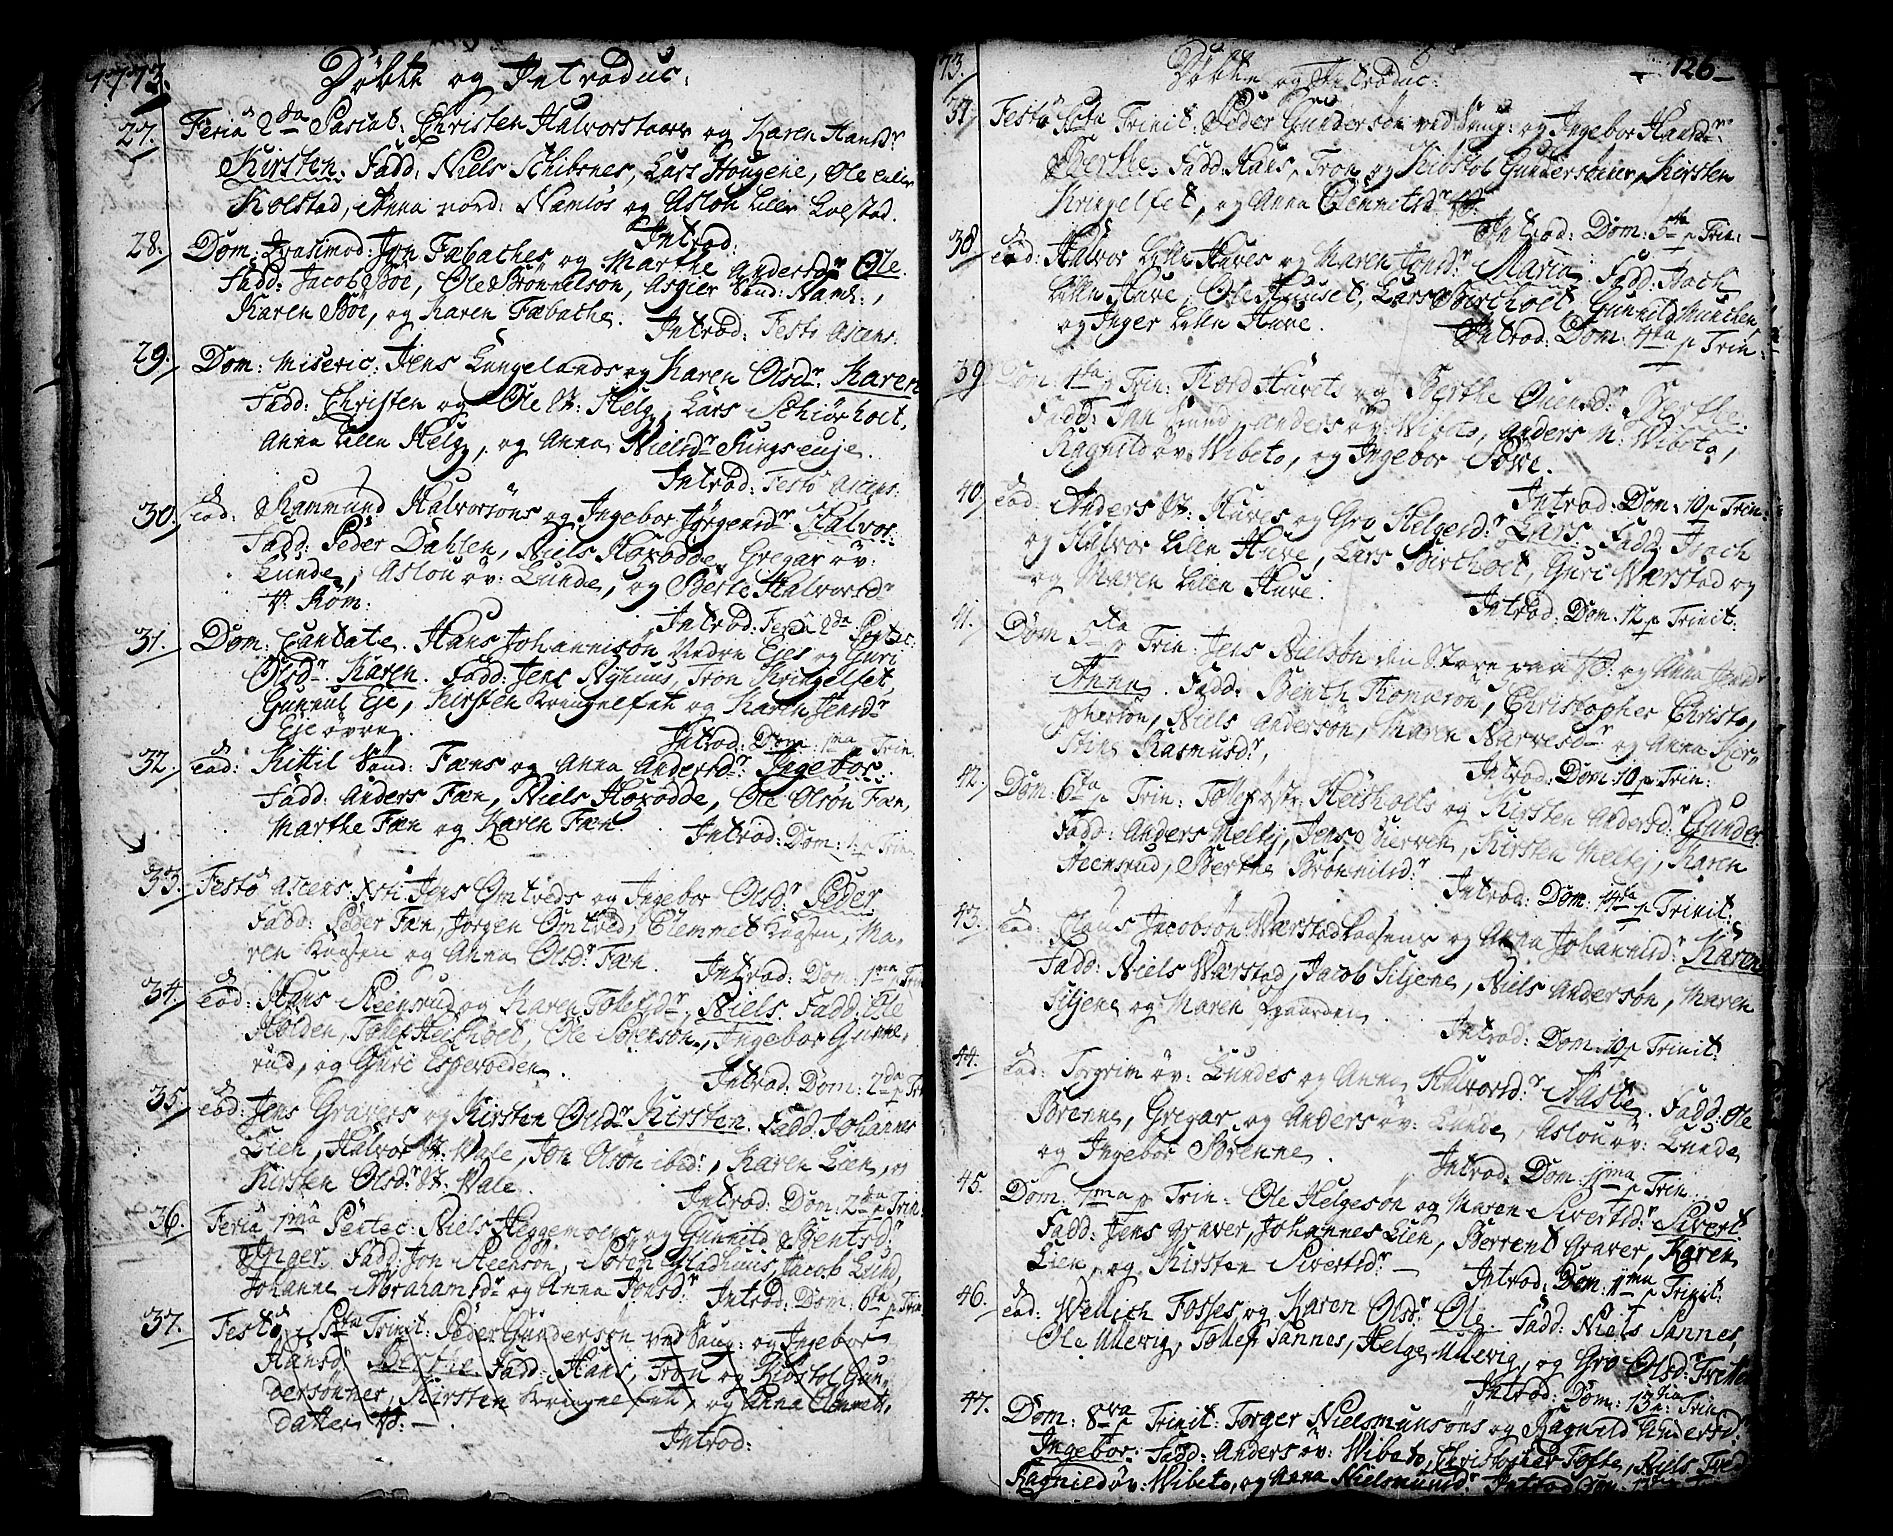 1773.
Döbte og Introduc:
27. Feria 2da Pascat: Christen Halvorstaars og Karen Hansdr
Kirsten. Fadd: Niels Schibsnes, Lars Hougene, Ole Lille
Kolstad, Anna nord: Namlös og Aslou Lille Kolstad.
Introd:
28. Dom: Jon Fæbaches og Marthe Andersdr Ole.
Fadd: Jacob Böe, Ole Brönnelsön, Asgier Sand: Namb:,
Karen Böe, og Karen Fæbache. Introd: Festo Ascens:
29. Dom: Miseric: Jens Lungelands og Karen Olsdr Karen
Fadd: Christen og Ole V: Helg, Lars Schiörholt,
Anna Lille Helg, og Anna Nielsdr Kongseuje.
Introd: Festo Ascens:
30. eod: Rammund Halvorsöns og Ingebor Jörgensdr Halvor.
Fadd: Peder Dahlen, Niels Hoxodde, Gregar öv:
Lunde, Aslou öv: Lunde, og Berte Halvorsdr
V: Röm: Introd: Feria 2da Pentec:
31. Dom: Cantate. Hans Johannisön Nedre Ejes og Guri
Olsdr Karen. Fadd: Jens Nyhuus, Tron Kringelfet,
Gunnul Eje, Kirsten Kringelfet og Karen Jensdr
Eje övre. Introd: Dom: 1ma p Trin.
32. eod: Kittil Sand: Fæns og Anna Andersdr Ingebor.
Fadd: Anders Fæn, Niels Hoxodde, Ole Olsön Fæn,
Marthe Fæn og Karen Fæn. Introd: Dom: p Trin
33. Festo Ascens: Xsti Jens Omtveds og Ingebor Olsdr Peder
Fadd: Peder Fæn, Jörgen Omtved, Clemmet Kaasen, Ma-
ren Kaasen og Anna Olsdr Fæn. Introd: Dom: 1ma p Trin
34. eod: Hans Steensrud og Karen Tolefsdr Niels. Fadd: Ole
Holden, Tolef Heisholt, Ole Sörensön, Ingebor Grinne-
rud, og Guri Esperoeden. Introd: Dom: 2da p Tr
35. eod: Jens Gravers og Kirsten Olsdr Kirsten. Fadd: Johannes
Lien, Halvor V: Vale, Jon Olsön ibid:, Karen Lien, og
Kirsten Olsdr V: Vale. Introd: Dom: 2da p Trin.
36. Feria 1ma Pentec: Niels Heggemoens og Gunnild Bentsdr
Inger. Fadd: Jon Steensön, Sören Gladhuus, Jacob Lund,
Johanne Abrahamsdr og Anna Jonsdr. Introd: Dom: 6ta p Trin
37. Festo Sta Trinit: Peder Gundersön ved Saug: og Ingebor
Hansd: Berthe. Fadd: Hans, Tron og Kiöstol Gun-
dersönner, Kirsten Kringelfet, og Anna Clemmets-
datter V:
Introd:
73.
Döbte og Introduc:
126
37. Festo Sta Trinit: Peder Gundersön ved Saug: og Ingebor Hansdr
Berthe. Fadd: Hans, Tron og Kiöstol Gundersönner, Kirsten
Kringelfet, og Anna Clemmetsdr
Introd: Dom: 5ta p Trin:
38. eod: Halvor Lille Huves og Maren Jonsdr Maria. Fadd: Isach
Lille Huve, Ole Huuset, Lars Birtholt, Gunnild Munchen,
og Inger Lille Huve. Introd: Dom: 4ta p Trin:
39. Dom: 4ta p Trin: Tiöstol Huvets og Berthe Ouensdr Berthe.
Fadd: Jan Lund, Anders öv: Wibeto, Anders M: Wibeto,
Ragnild öv: Wibeto, og Ingebor Sove.
Introd: Dom: 10 p Trin:
40. eod: Anders V: Huves og Gro Helgesdr Lars. Fadd: Isach
og Halvor Lille Huve, Lars Birtholt, Guri Værstad og
og Maren Lille Huve. Introd: Dom: 12 p Trinit:
41. Dom 5ta p Trin: Jens Nielsön den Store paa V: og Anna Jensdr
Anna. Fadd: Benth Thomæsön, Christopher Christo-
phersön, Niels Andersön, Maren Narvesdr og Anna Kier-
stine Rasmusdr, Introd: Dom: 10 p Trin:
42. Dom: 6ta p Trin: Tollef östr: Heisholts og Kirsten Andersd: Gunder
Fadd: Anders Melbj, Jens Bierven, Kirsten Melbj, Karen
Steensrud, Berthe Brönnildsdr
Introd: Dom: 14ta p Trinit:
43. eod: Claus Jacobsön Wærstad Kaasens og Anna Johannisdr Karen
Fadd: Niels Wærstad, Jacob Siljene, Niels Andersön, Maren
Siljene og Maren Kaarden.
Introd: Dom: 10 p Trinit:
44. eod: Torgrim öv: Lundes og Anne Halvorsdr Aaste. Fadd: Ole
Brenne, Gregar og Anders öv: Lunde, Aslou öv: Lunde
og Ingebor Brenne. Introd: Dom: 11ma p Trin.
45. Dom: 7ma p Trin: Ole Helgesön og Maren Sivertsdr Sivert
Fadd: Jens Graver, Johannes Lien, Berrent Graver, Karen
Lien, og Kirsten Sivertsdr Introd: Dom: 11ma p Trinit:
46. eod: Wellich Fosses og Karen Olsdr Ole. Fadd: Niels Sannes,
Ole Ullevig, Tollef Sannes, Helge Ullevig, og Gro Olsdr
Introd: Dom: 13 p: Trin
47. Dom: 8va p Trinit: Torger Nielsmunsöns og Ragnild Andersd:
Ingebor. Fadd: Anders öv: Wibeto, Christopher Tofte, Niels
Ragnild öv: Wibeto, og Anna Nielsmunsdr Introd: Dom: